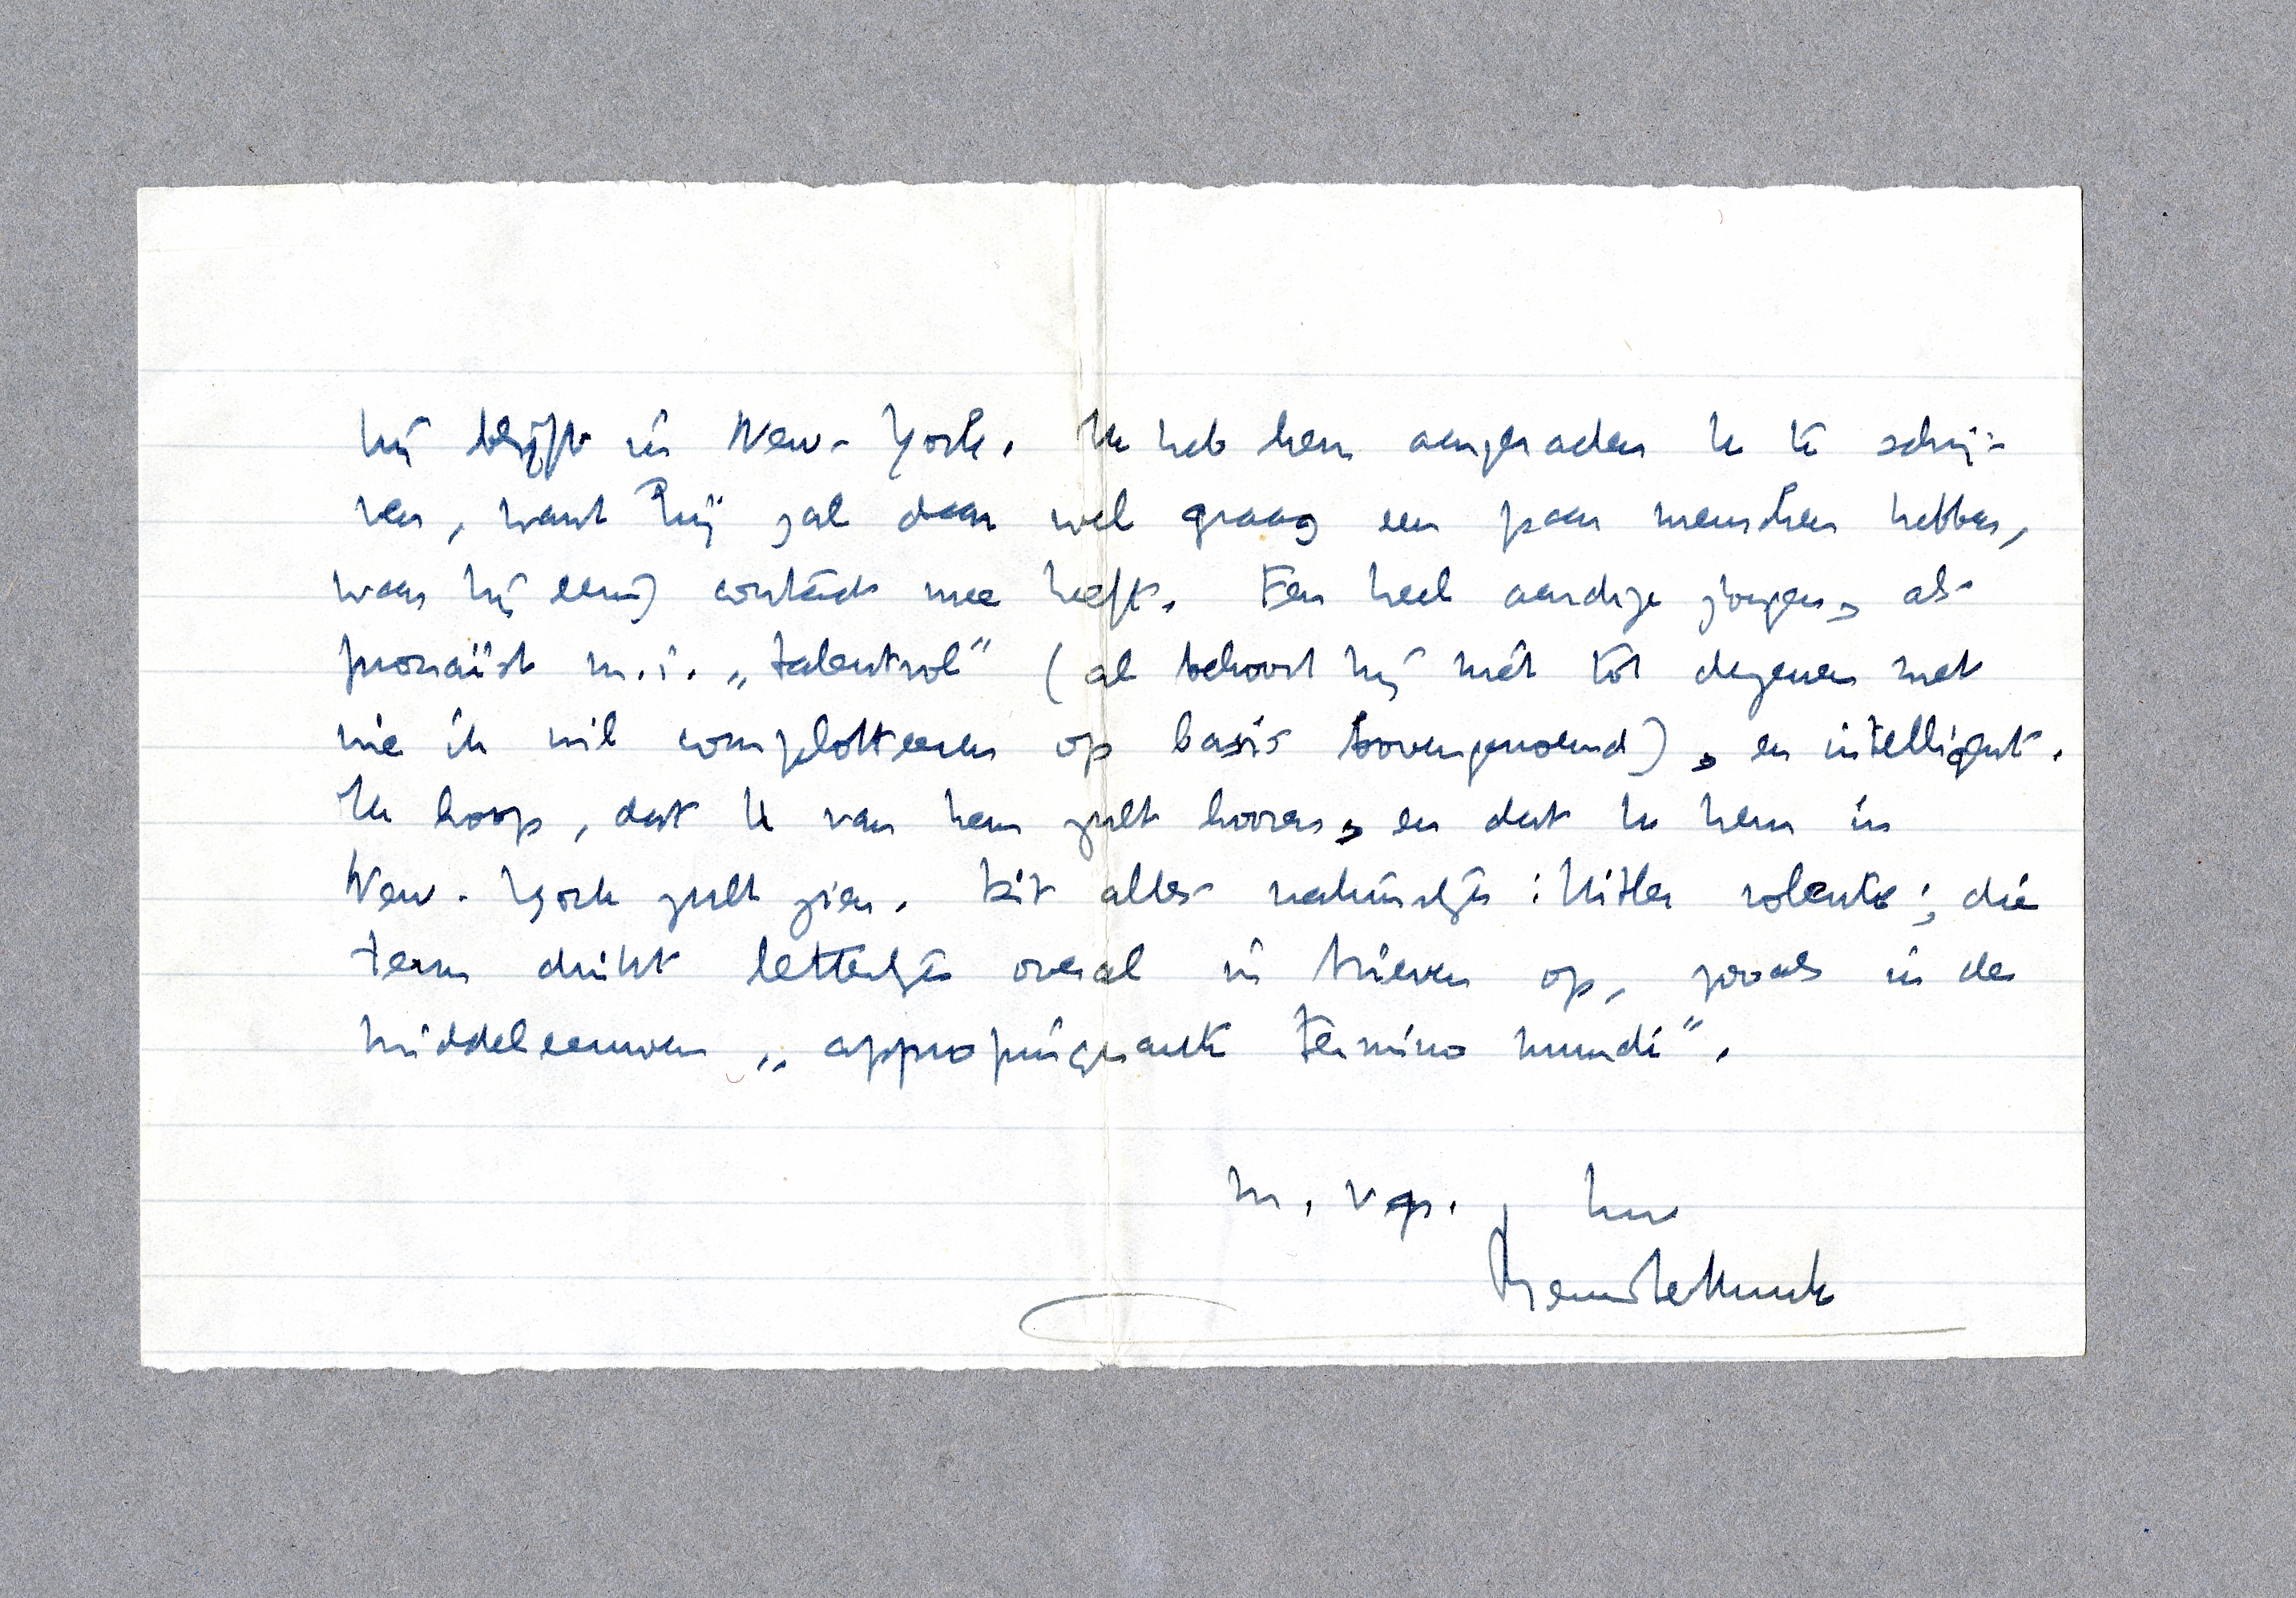 hij blijft in New-York. Ik heb hem aangeraden U te schrij-
ven, want hij zal daar wel graag een paar menschen hebben,
waar hij eenig contact mee heeft. Een heel aardige jongen, als
prozaïst m.i. „talentvol” (al behoort hij niet tot degenen met
wie ik wil complotteeren op basis bovengenoemd), en intelligent.
Ik hoop, dat U van hem zult hooren, en dat U hem in
New-York zult zien. Dit alles natuurlijk: Hitler volente; die
term duikt letterlijk overal in brieven op, zooals in de
Middeleeuwen „appropinquante termino mundi”.
m. vgr. Uw